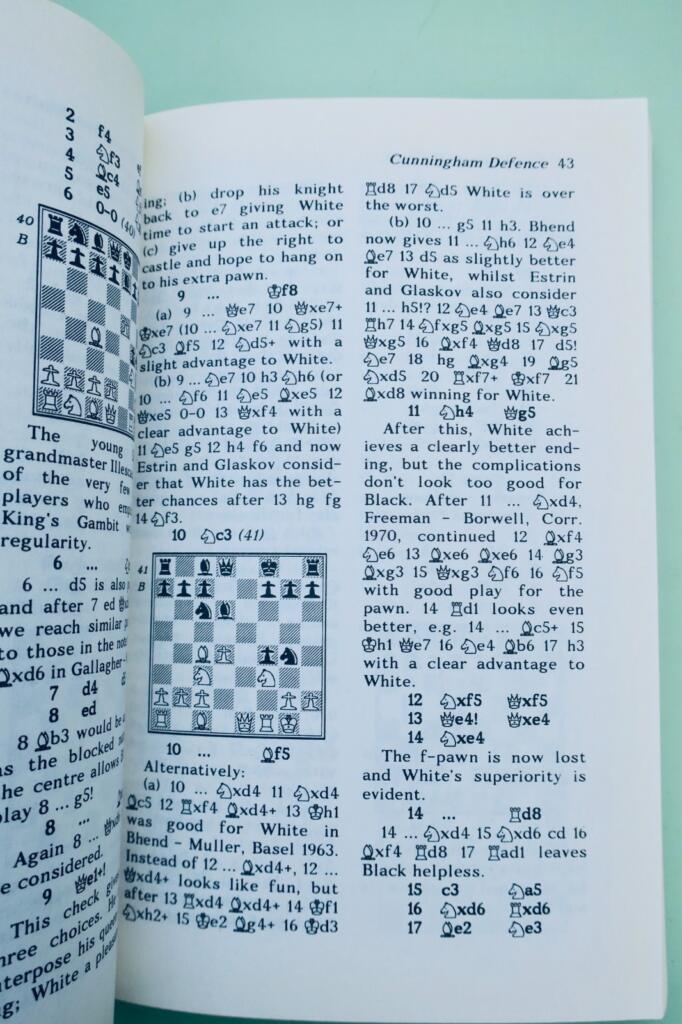 2 f4
3 ♘f3
4 ♗c4
5 e5
6 0-0 (40)
40
B
The young
grandmaster Illesc
of the very few
players who
King's Gambit
regularity.
6 ...
6 ... d5 is also
and after 7 ed
we reach similar
to those in the
♗xd6 in Gallagher-
7 d4
8 ed
8 ♗b3 would be
as the blocked
the centre allows
play 8 ... g5!
8 ...
Again 8 ...
be considered.
9 ♕e1+!
This check
three choices.
interpose his
White a
Cunningham Defence 43
ing; (b) drop his knight
back to e7 giving White
time to start an attack; or
(c) give up the right to
castle and hope to hang on
to his extra pawn.
9 ... ♔f8
(a) 9 ... ♕e7 10 ♕xe7+
♔xe7 (10 ... ♘xe7 11 ♘g5) 11
♘c3 ♗f5 12 ♘d5+ with a
slight advantage to White.
(b) 9 ... ♘e7 10 h3 ♘h6 (or
10 ... ♘f6 11 ♘e5 ♗xe5 12
♕xe5 0-0 13 ♕xf4 with a
clear advantage to White)
11 ♘e5 g5 12 h4 f6 and now
Estrin and Glaskov consid-
er that White has the bet-
ter chances after 13 hg fg
14 ♘f3.
10 ♘c3 (41)
41
B
10 ... ♗f5
Alternatively:
(a) 10 ... ♘xd4 11 ♘xd4
♗c5 12 ♖xf4 ♗xd4+ 13 ♔h1
was good for White in
Bhend - Muller, Basel 1963.
Instead of 12 ... ♗xd4+, 12 ...
♕xd4+ looks like fun, but
after 13 ♖xd4 ♗xd4+ 14 ♔f1
♘xh2+ 15 ♔e2 ♗g4+ 16 ♔d3
♖d8 17 ♘d5 White is over
the worst.
(b) 10 ... g5 11 h3. Bhend
now gives 11 ... ♘h6 12 ♘e4
♗e7 13 d5 as slightly better
for White, whilst Estrin
and Glaskov also consider
11 ... h5!? 12 ♘e4 ♗e7 13 ♕c3
♖h7 14 ♘fxg5 ♗xg5 15 ♘xg5
♕xg5 16 ♗xf4 ♕d8 17 d5!
♘e7 18 hg ♗xg4 19 ♗g5
♘xd5 20 ♖xf7+ ♔xf7 21
♗xd8 winning for White.
11 ♘h4 ♕g5
After this, White ach-
ieves a clearly better end-
ing, but the complications
don't look too good for
Black. After 11 ... ♘xd4,
Freeman - Borwell, Corr.
1970, continued 12 ♗xf4
♘e6 13 ♗xe6 ♗xe6 14 ♗g3
♗xg3 15 ♕xg3 ♘f6 16 ♘f5
with good play for the
pawn. 14 ♖d1 looks even
better, e.g. 14 ... ♗c5+ 15
♔h1 ♕e7 16 ♘e4 ♗b6 17 h3
with a clear advantage to
White.
12 ♘xf5 ♕xf5
13 ♕e4! ♕xe4
14 ♘xe4
The f-pawn is now lost
and White's superiority is
evident.
14 ... ♖d8
14 ... ♘xd4 15 ♘xd6 cd 16
♗xf4 ♖d8 17 ♖ad1 leaves
Black helpless.
15 c3 ♘a5
16 ♘xd6 ♖xd6
17 ♗e2 ♘e3